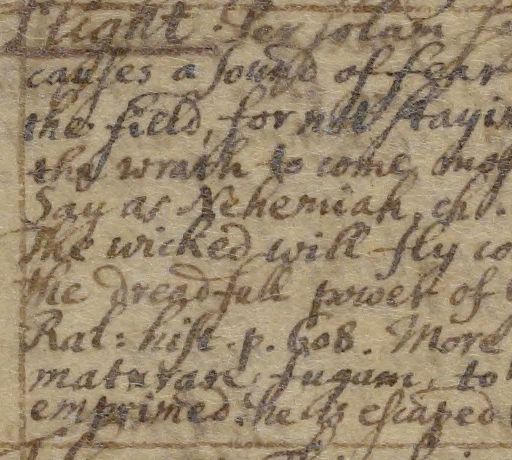 flight. Per totam
causes a sound of fear
the field, for not stayin
the wrath to come, mos
Say as Nehemiah, ch.
the wicked will fly co
the dreadfull power of
Ral: hist. p. 608. More
maturare fugam, to
emprimed. he is escaped